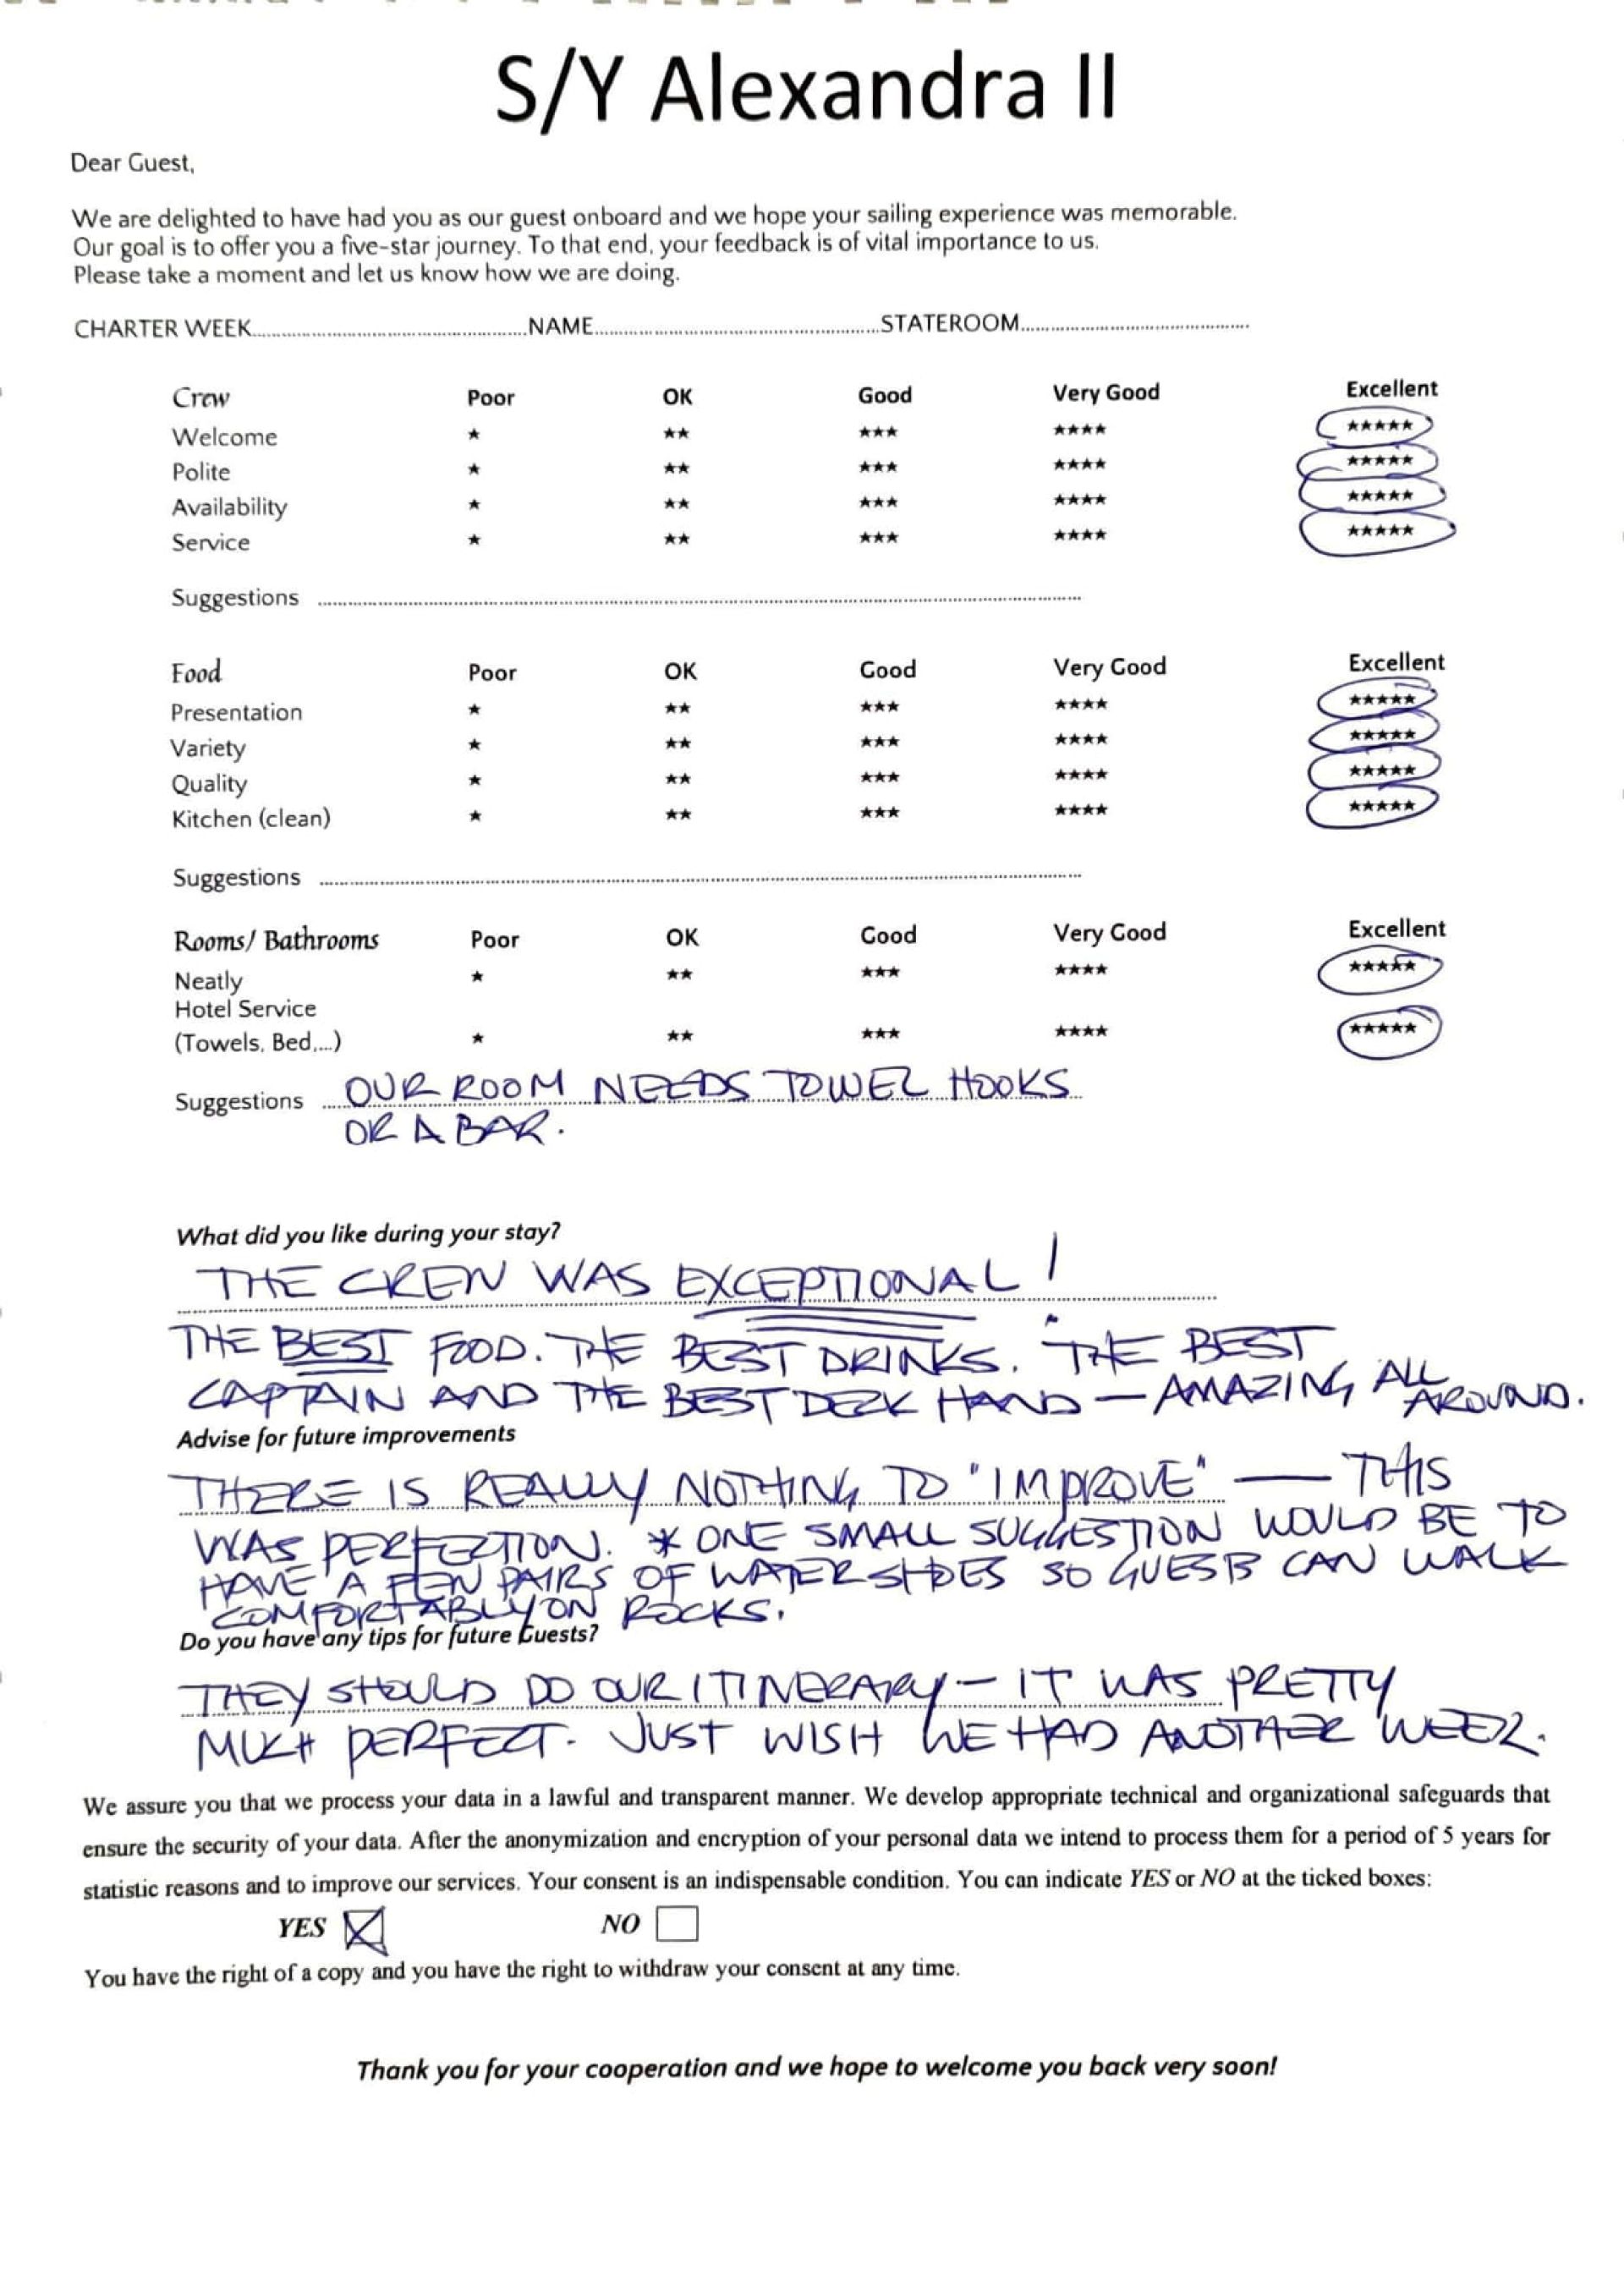 S/Y Alexandra II
Dear Guest,
We are delighted to have had you as our guest onboard and we hope your sailing experience was memorable.
Our goal is to offer you a five-star journey. To that end, your feedback is of vital importance to us.
Please take a moment and let us know how we are doing.
CHARTER WEEK...............NAME...............STATEROOM...............
Crew Poor OK Good Very Good Excellent
Welcome ★ ★★ ★★★ ★★★★ ★★★★★
Polite ★ ★★ ★★★ ★★★★ ★★★★★
Availability ★ ★★ ★★★ ★★★★ ★★★★★
Service ★ ★★ ★★★ ★★★★ ★★★★★
Suggestions ...............
Food Poor OK Good Very Good Excellent
Presentation ★ ★★ ★★★ ★★★★ ★★★★★
Variety ★ ★★ ★★★ ★★★★ ★★★★★
Quality ★ ★★ ★★★ ★★★★ ★★★★★
Kitchen (clean) ★ ★★ ★★★ ★★★★ ★★★★★
Suggestions ...............
Rooms/ Bathrooms Poor OK Good Very Good Excellent
Neatly ★ ★★ ★★★ ★★★★ ★★★★★
Hotel Service
(Towels, Bed,...) ★ ★★ ★★★ ★★★★ ★★★★★
Suggestions OUR ROOM NEEDS TOWEL HOOKS
OR A BAR.
What did you like during your stay?
THE CREW WAS EXCEPTIONAL!
THE BEST FOOD. THE BEST DRINKS. THE BEST
CAPTAIN AND THE BEST DECK HAND — AMAZING ALL AROUND.
Advise for future improvements
THERE IS REALLY NOTHING TO "IMPROVE" — THIS
WAS PERFECTION. * ONE SMALL SUGGESTION WOULD BE TO
HAVE A FEW PAIRS OF WATER SHOES SO GUESTS CAN WALK
COMFORTABLY ON ROCKS.
Do you have any tips for future Guests?
THEY SHOULD DO OUR ITINERARY — IT WAS PRETTY
MUCH PERFECT. JUST WISH WE HAD ANOTHER WEEK.
We assure you that we process your data in a lawful and transparent manner. We develop appropriate technical and organizational safeguards that
ensure the security of your data. After the anonymization and encryption of your personal data we intend to process them for a period of 5 years for
statistic reasons and to improve our services. Your consent is an indispensable condition. You can indicate YES or NO at the ticked boxes:
YES ☒ NO ☐
You have the right of a copy and you have the right to withdraw your consent at any time.
Thank you for your cooperation and we hope to welcome you back very soon!